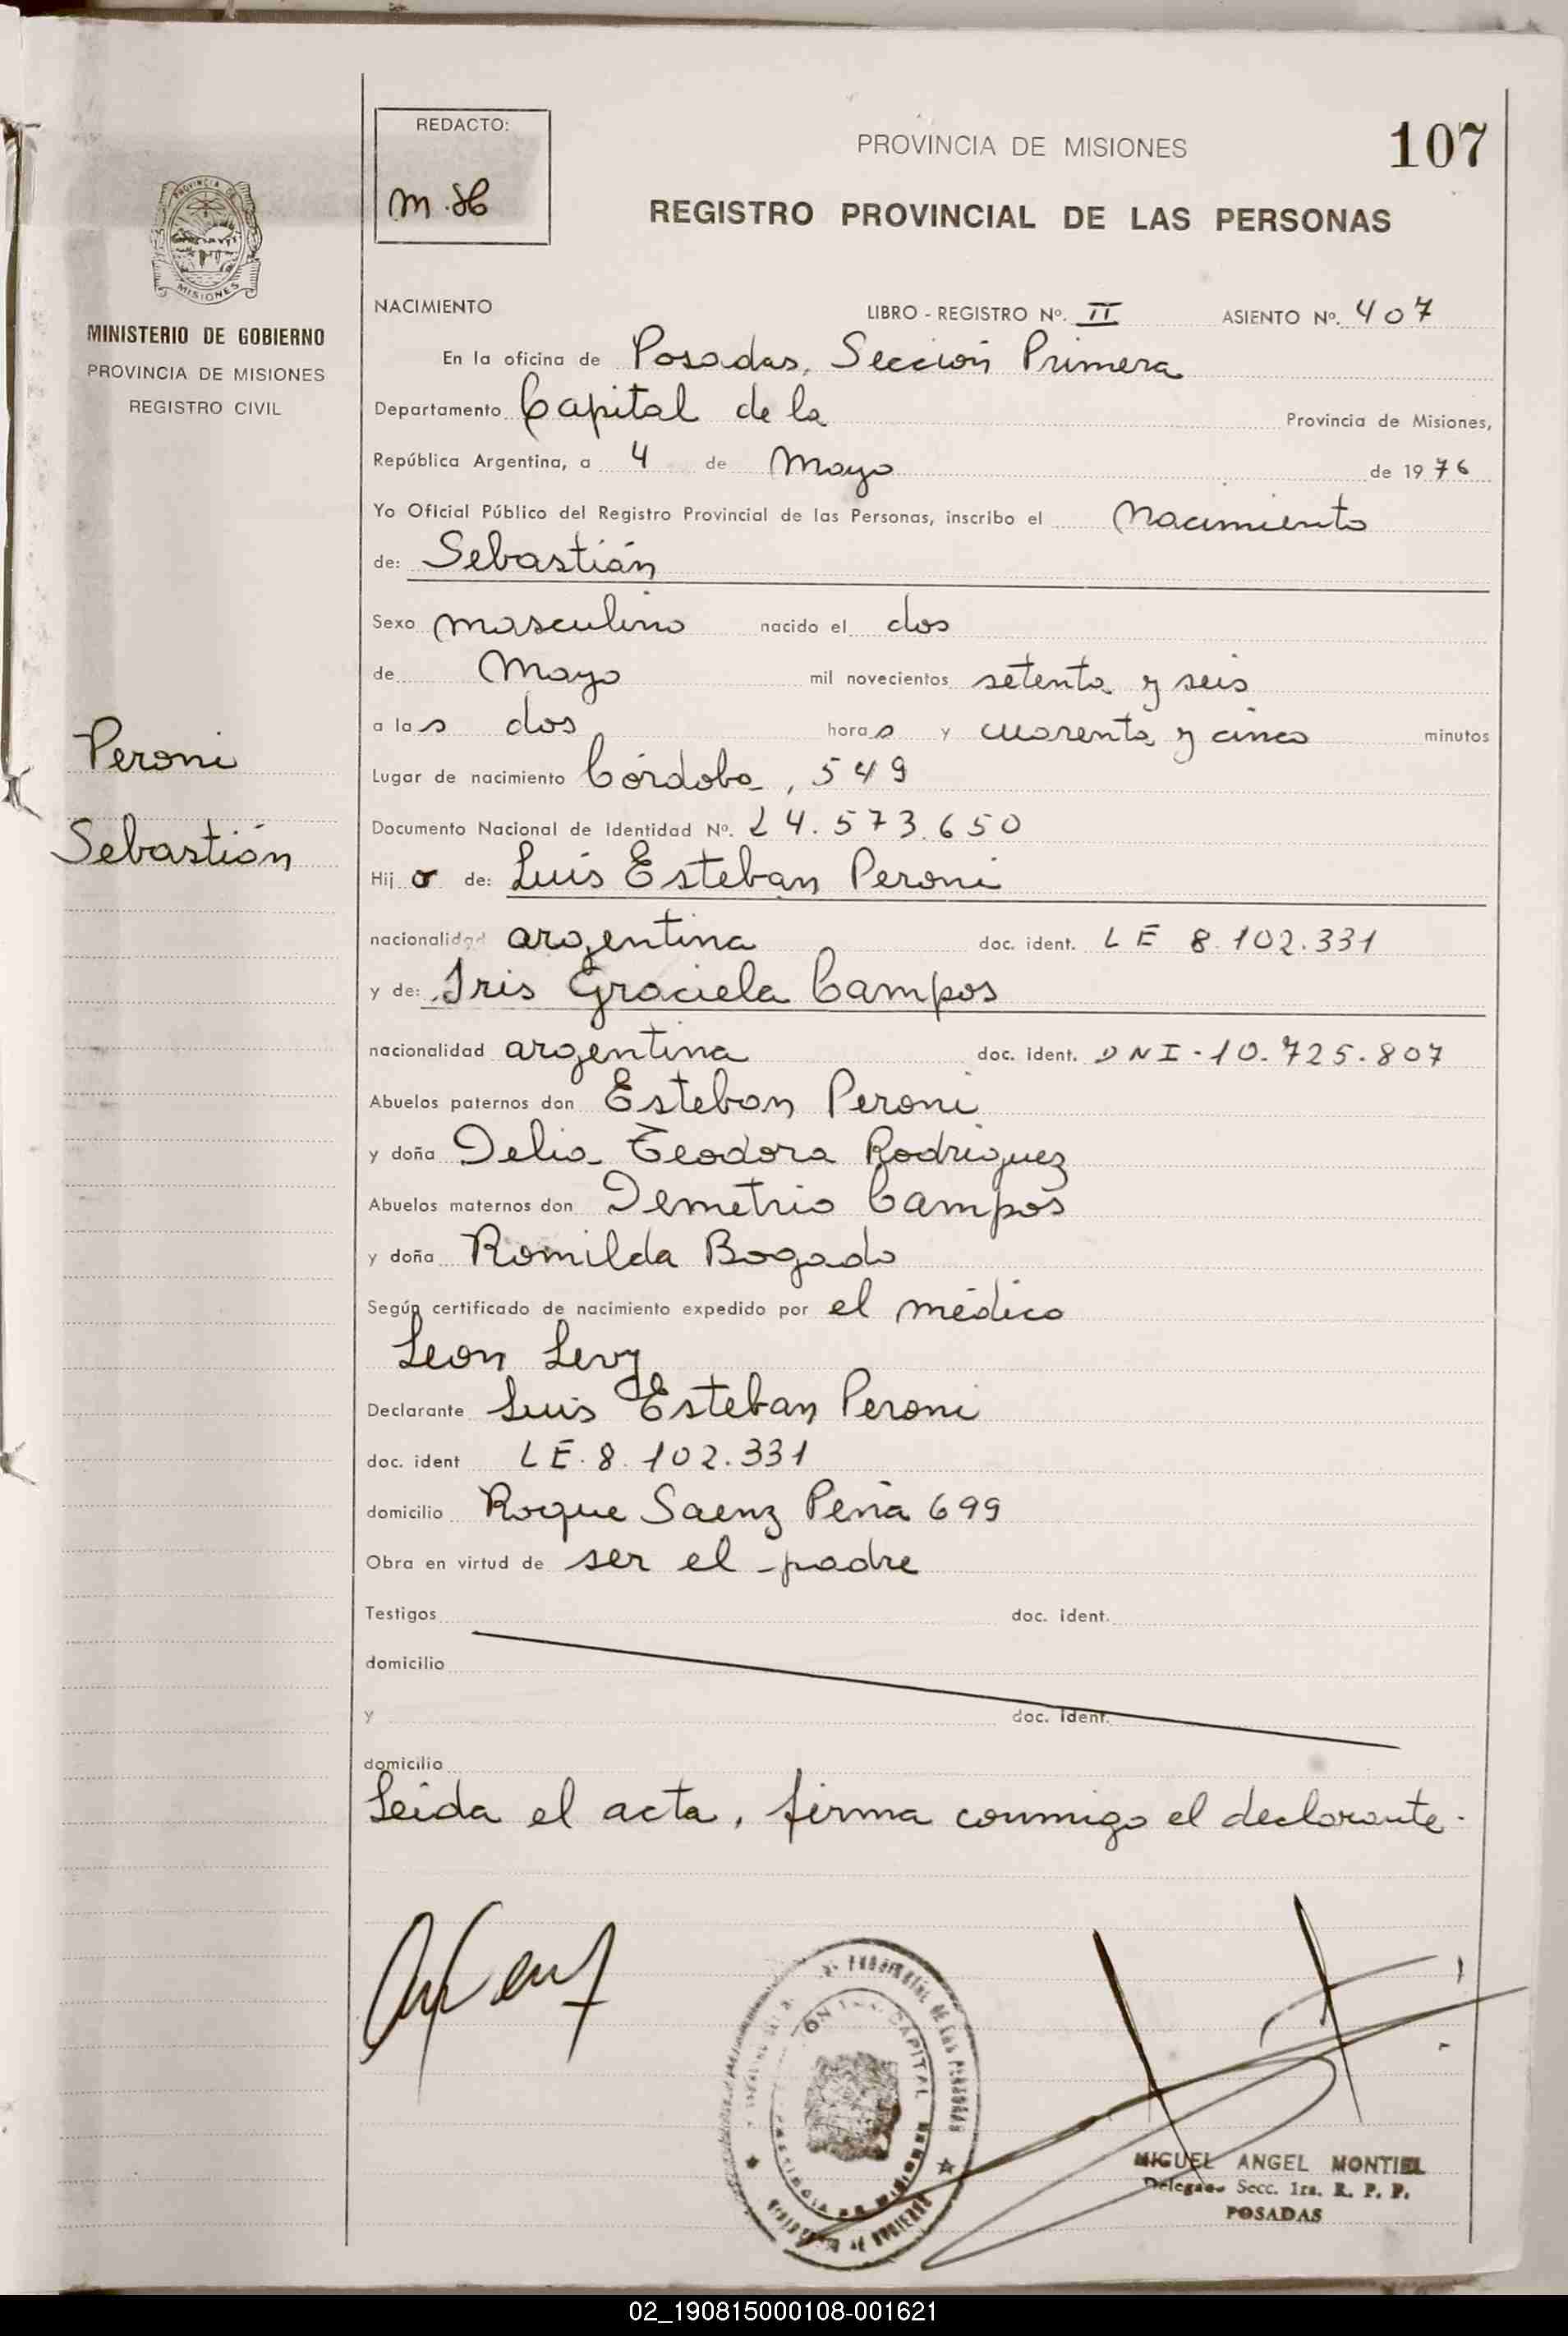 REDACTO:
PROVINCIA DE MISIONES
107
REGISTRO PROVINCIAL DE LAS PERSONAS
MISIONES
MINISTERIO DE GOBIERNO
PROVINCIA DE MISIONES
REGISTRO CIVIL
NACIMIENTO LIBRO - REGISTRO Nº. II ASIENTO Nº. 407
En la oficina de Posadas, Sección Primera
Departamento Capital de la Provincia de Misiones,
República Argentina, a 4 de Mayo de 1976
Yo Oficial Público del Registro Provincial de las Personas, inscribo el Nacimiento
de: Sebastián
Sexo masculino nacido el dos
de Mayo mil novecientos setenta y seis
a las dos horas y cuarenta y cinco minutos
Peroni
Lugar de nacimiento Córdoba, 549
Documento Nacional de Identidad Nº. 24.573.650
Sebastián
Hijo de: Luis Esteban Peroni
nacionalidad argentina doc. ident. LE 8.102.331
y de: Iris Graciela Campos
nacionalidad argentina doc. ident. DNI-10.725.807
Abuelos paternos don Esteban Peroni
y doña Delia Teodora Rodriguez
Abuelos maternos don Demetrio Campos
y doña Romilda Bogado
Según certificado de nacimiento expedido por el médico
Leon Levy
Declarante Luis Esteban Peroni
doc. ident LE.8.102.331
domicilio Roque Saenz Peña 699
Obra en virtud de ser el padre
Testigos doc. ident.
domicilio
y doc. ident.
domicilio
Leida el acta, firma conmigo el declarante.
CAPITAL
MIGUEL ANGEL MONTIEL
Delegado Secc. 1ra. R. P. P.
POSADAS
02_190815000108-001621